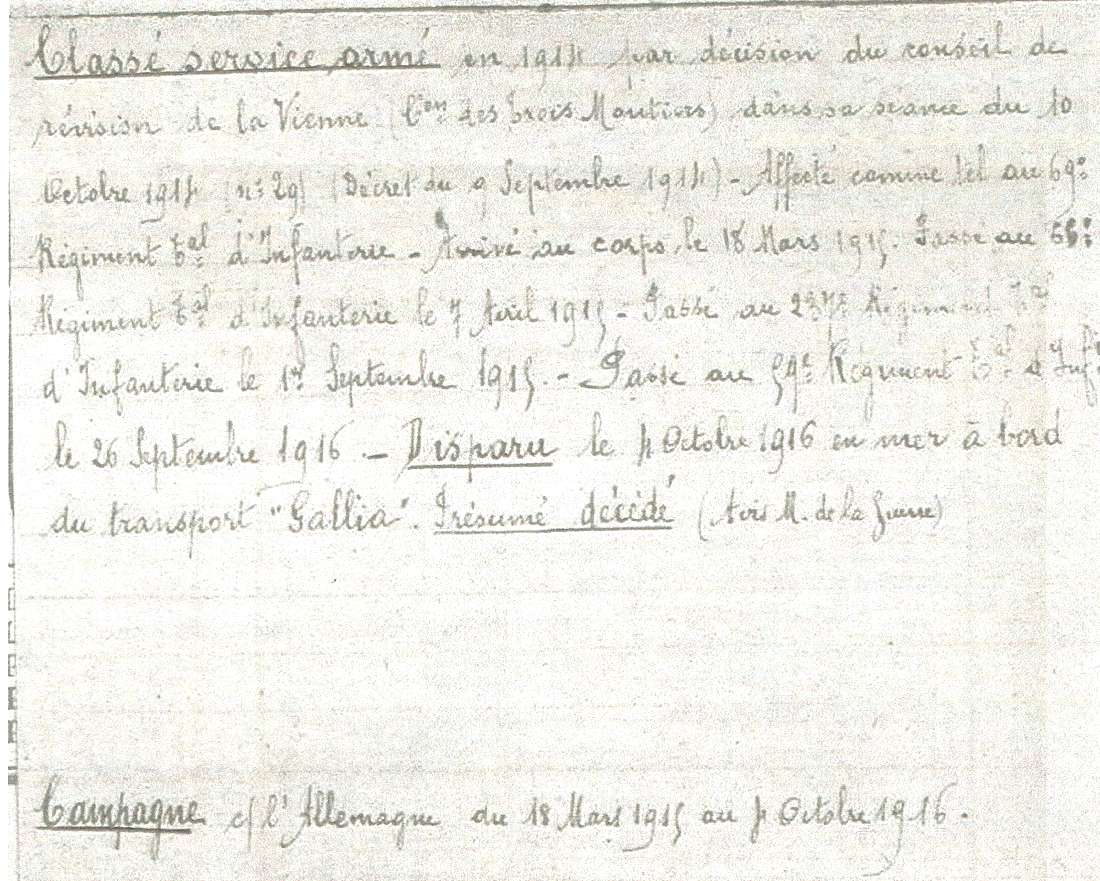 Classé service armé en 1914 par décision du conseil de
révision de la Vienne (C^on des Trois Moutiers) dans sa séance du 10
Octobre 1914 (n° 29) (Décret du 9 Septembre 1914) - Affecté comme tel au 69e
Régiment T^al d'Infanterie - Arrivé au corps le 18 Mars 1915. Passé au
Régiment T^al d'Infanterie le 7 Avril 1915 - Passé au 237e Régiment T^al
d'Infanterie le 1er Septembre 1915. - Passé au 59e Régiment T^al d'Inf^ie
le 26 Septembre 1916 - Disparu le 4 Octobre 1916 en mer à bord
du transport "Gallia". Présumé décédé (Avis M. de la Guerre)
Campagne c/ l'Allemagne du 18 Mars 1915 au 4 Octobre 1916.